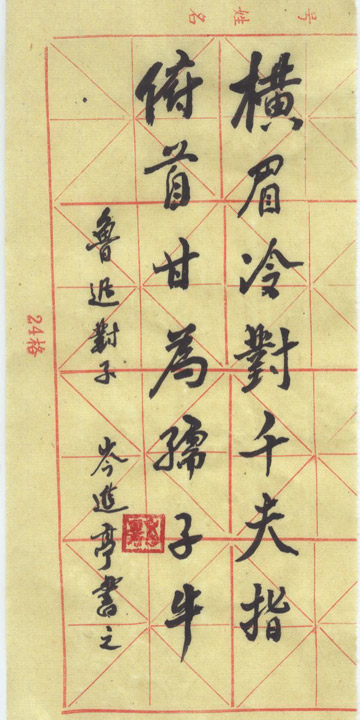 橫眉冷對千夫指
俯首甘為孺子牛
魯迅對子 岑進亭書之
24格
姓名
号